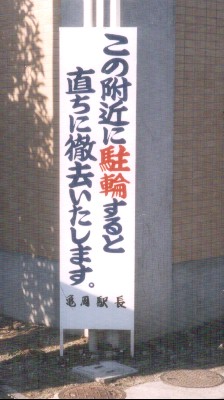 この附近に駐輪すると
直ちに徹去いたします。
亀岡駅長